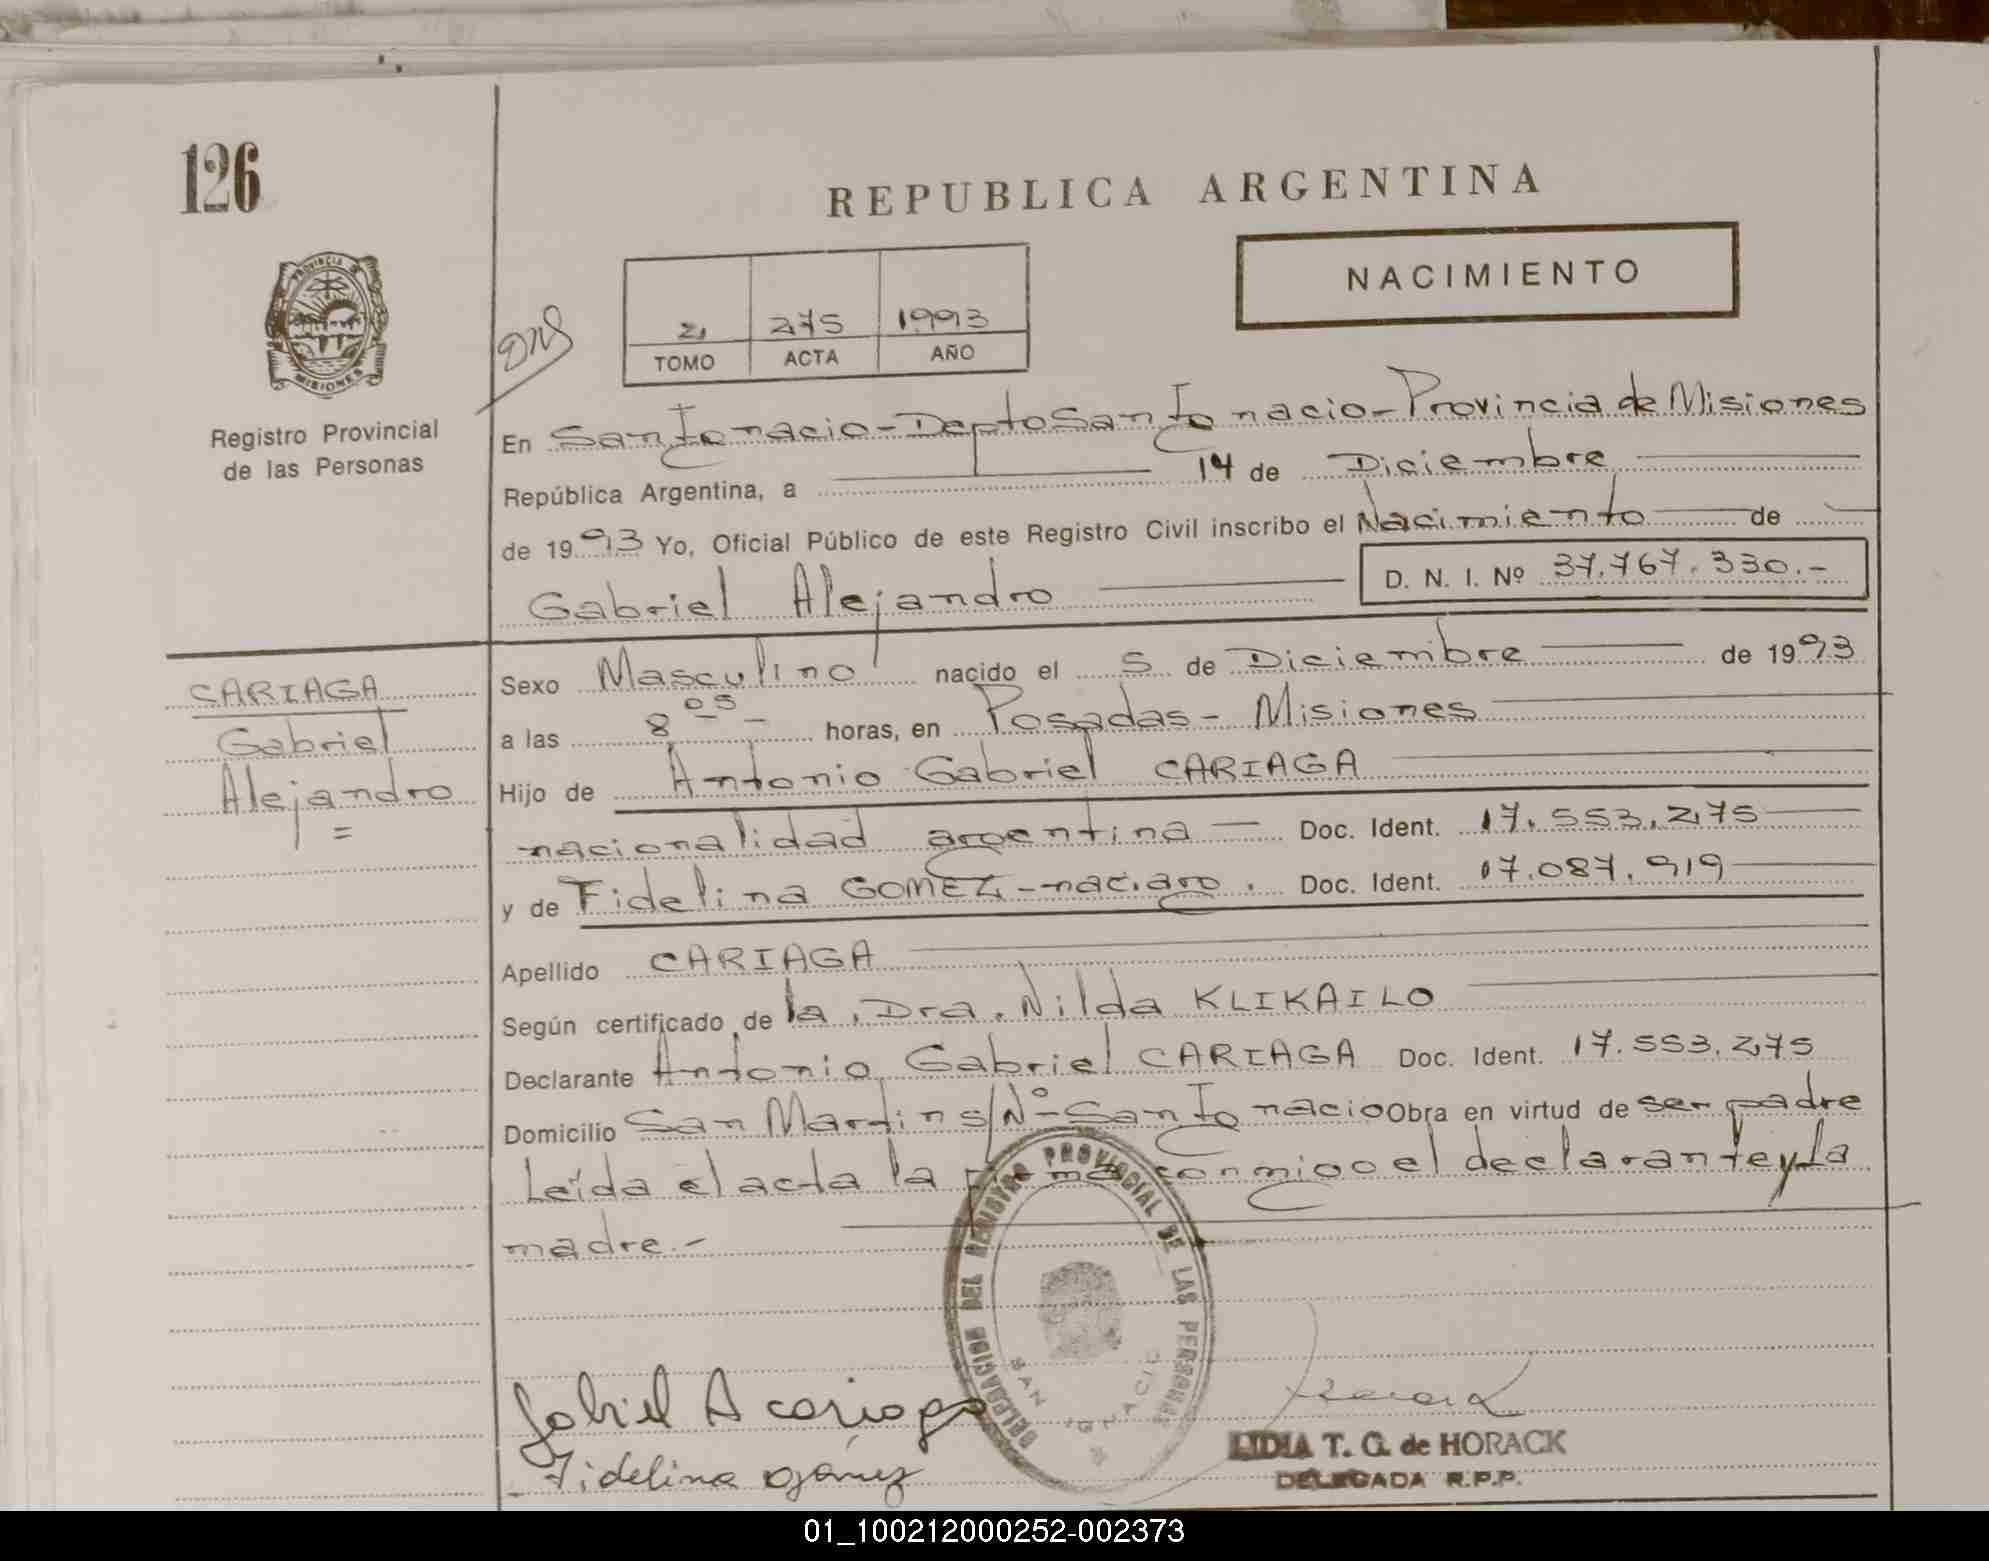 126
REPUBLICA ARGENTINA
NACIMIENTO
PROVINCIA DE
MISIONES
Registro Provincial
de las Personas
2 275 1993
TOMO ACTA AÑO
En San Ignacio - Depto San Ignacio - Provincia de Misiones
República Argentina, a 14 de Diciembre
de 1993 Yo, Oficial Público de este Registro Civil inscribo el Nacimiento de
Gabriel Alejandro D. N. I. Nº 37.767.330.-
CARIAGA
Gabriel
Alejandro
=
Sexo Masculino nacido el 5 de Diciembre de 1993
a las 8 05 horas, en Posadas - Misiones
Hijo de Antonio Gabriel CARIAGA
nacionalidad argentina Doc. Ident. 17.553.275
y de Fidelina GOMEZ - nac. arg. Doc. Ident. 17.087.919
Apellido CARIAGA
Según certificado de la Dra. Nilda KLIKAILO
Declarante Antonio Gabriel CARIAGA Doc. Ident. 17.553.275
Domicilio San Martin s/Nº - San Ignacio Obra en virtud de ser padre
Leída el acta la firma conmigo el declarante y la
madre.-
DELEGACION DEL REGISTRO PROVINCIAL DE LAS PERSONAS
SAN IGNACIO
Gabriel A cariaga
Fidelina gómez
LIDIA T. G. de HORACK
DELEGADA R.P.P.
01_100212000252-002373